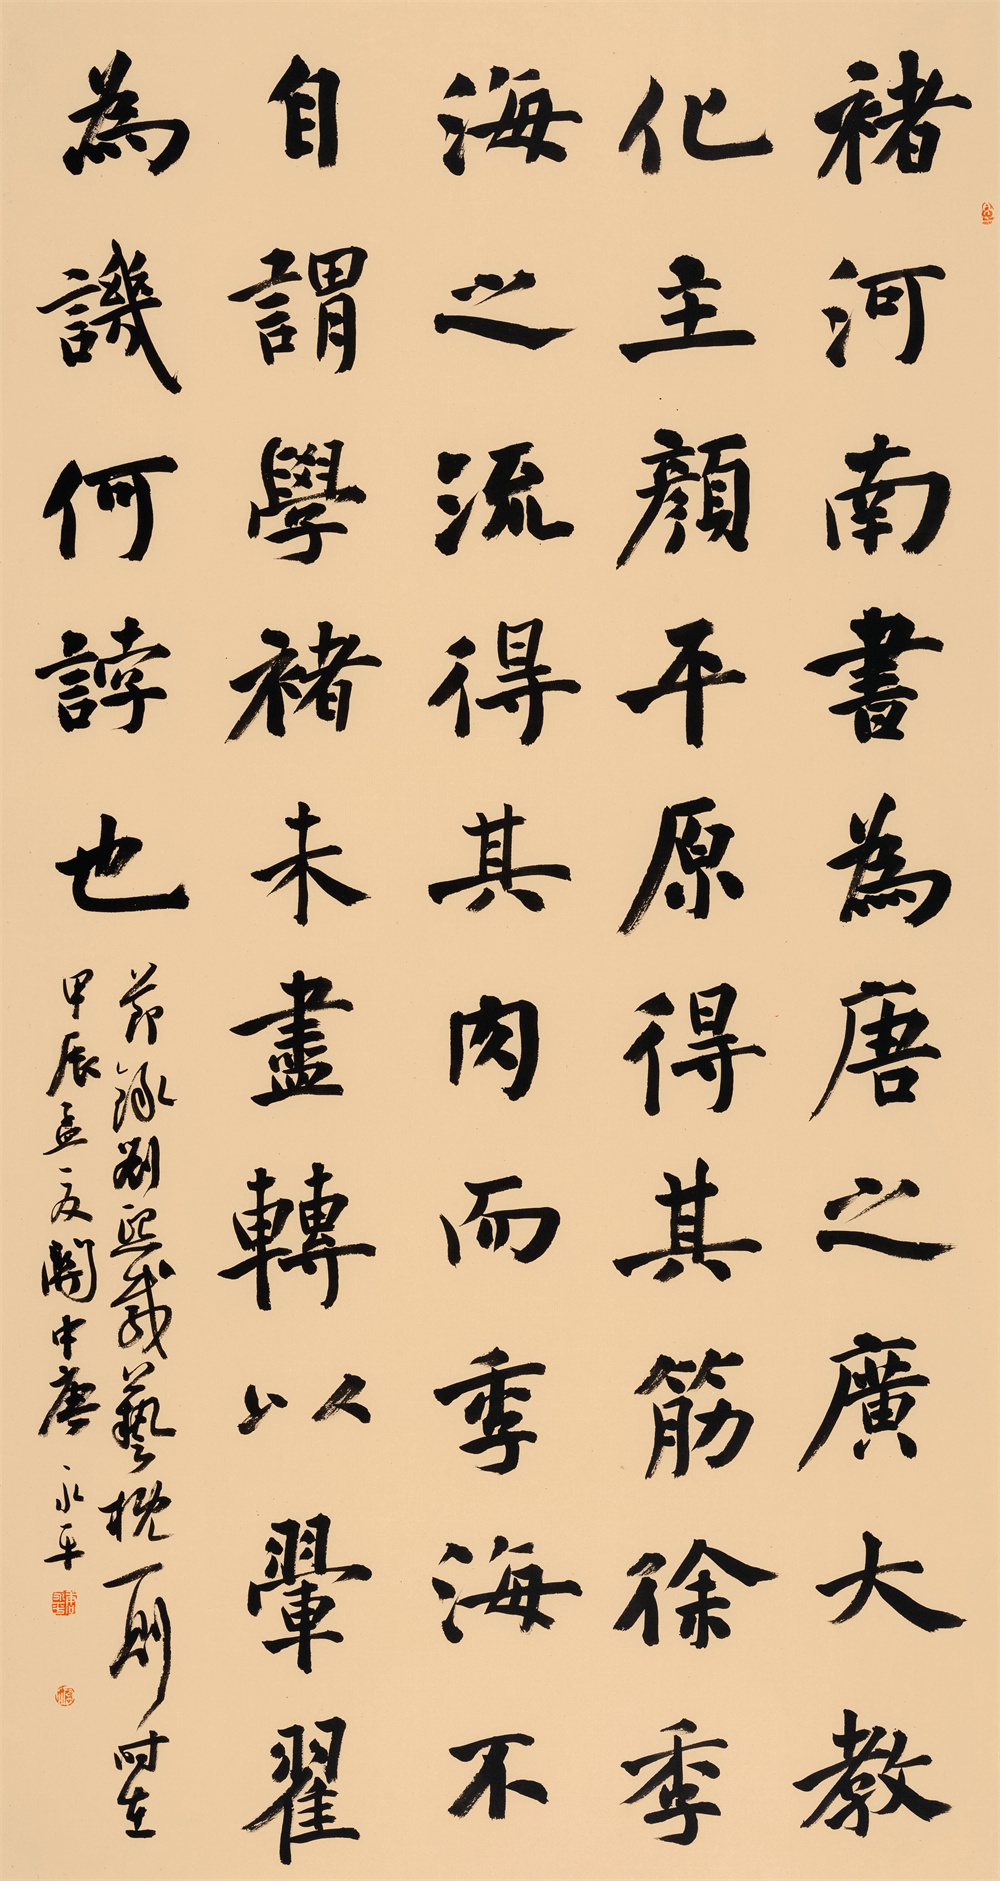 褚河南書為唐之廣大教
化主顏平原得其筋徐季
海之流得其肉而季海不
自謂學褚未盡轉以翬翟
為譏何誖也
節錄劉熙載藝概一則時在
甲辰孟夏關中唐永平